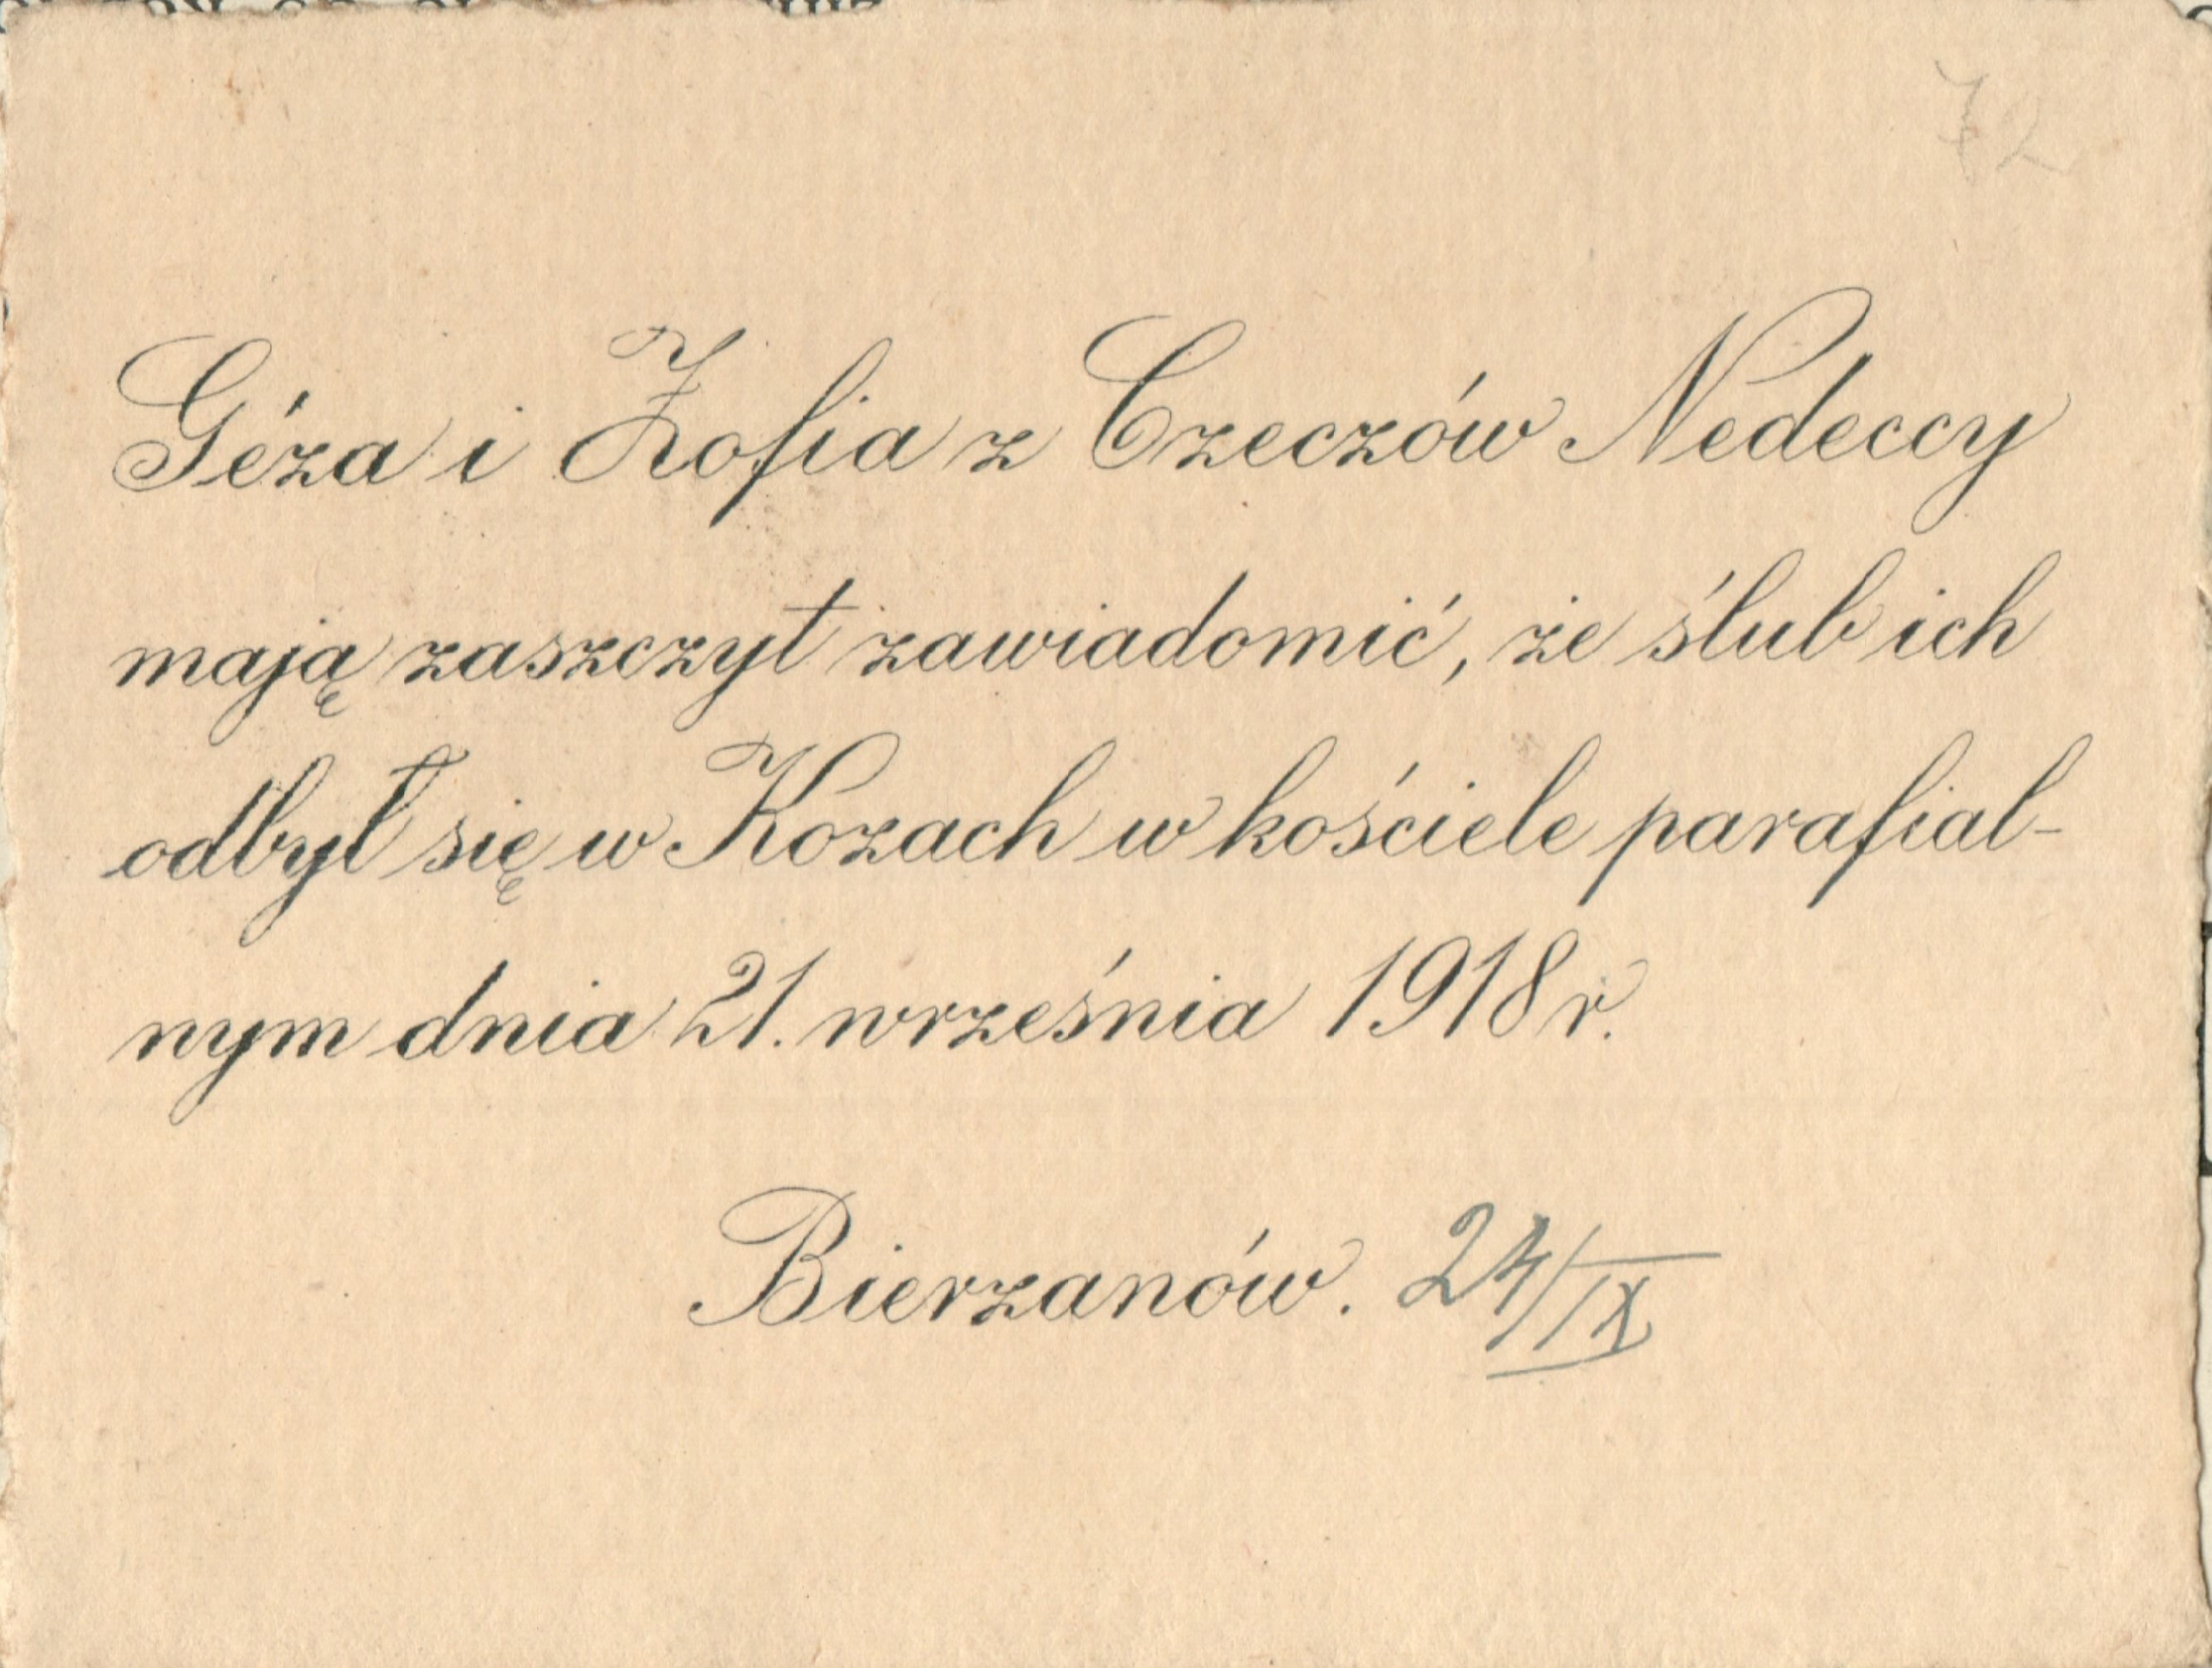 72
Géza i Zofia z Czeczów Nedeccy
mają zaszczyt zawiadomić, że ślub ich
odbył się w Kozach w kościele parafial-
nym dnia 21. września 1918 r.
Bierzanów. 24/IX